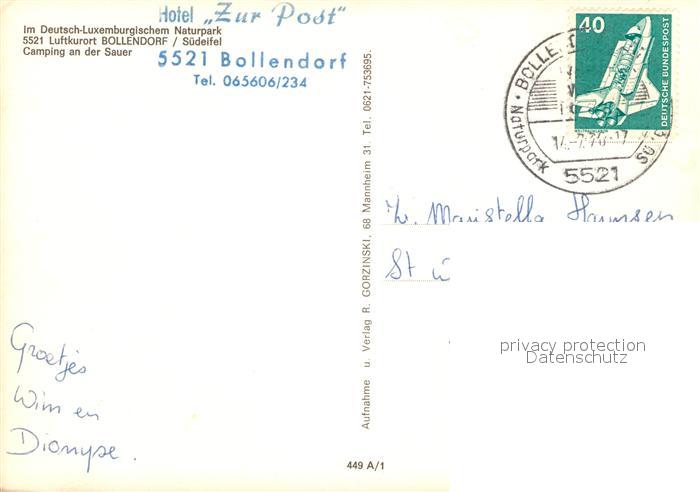 Hotel „Zur Post"
5521 Bollendorf
Tel. 065606/234
Im Deutsch-Luxemburgischem Naturpark
5521 Luftkurort BOLLENDORF / Südeifel
Camping an der Sauer
40
DEUTSCHE BUNDESPOST
BOLLE
Naturpark
5521
Aufnahme u. Verlag R. GORZINSKI, 68 Mannheim 31. Tel. 0621-753695.
Maristella
St
privacy protection
Datenschutz
Groetjes
Wim en
Dionyse.
449 A/1